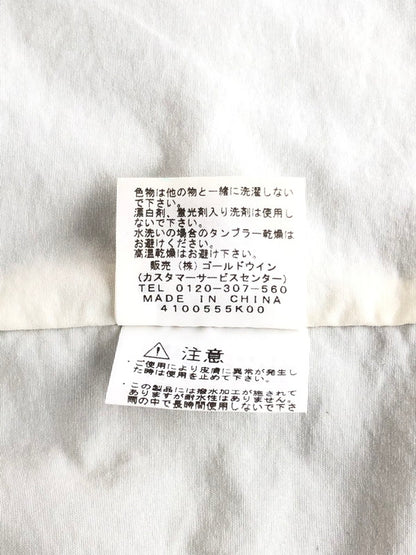 色物は他の物と一緒に洗濯しない
で下さい。
漂白剤、蛍光剤入り洗剤は使用し
ないで下さい。
水洗いの場合のタンブラー乾燥は
お避けください。
高温乾燥はお避け下さい。
販売 (株) ゴールドウイン
(カスタマーサービスセンター)
TEL 0120-307-560
MADE IN CHINA
4100555K00
注意
・ご使用により皮膚に異常が発生し
た時は使用を止めて下さい。
・この製品には撥水加工が施されて
ありますが耐水性はありません。
雨の中で長時間使用しないで下さ